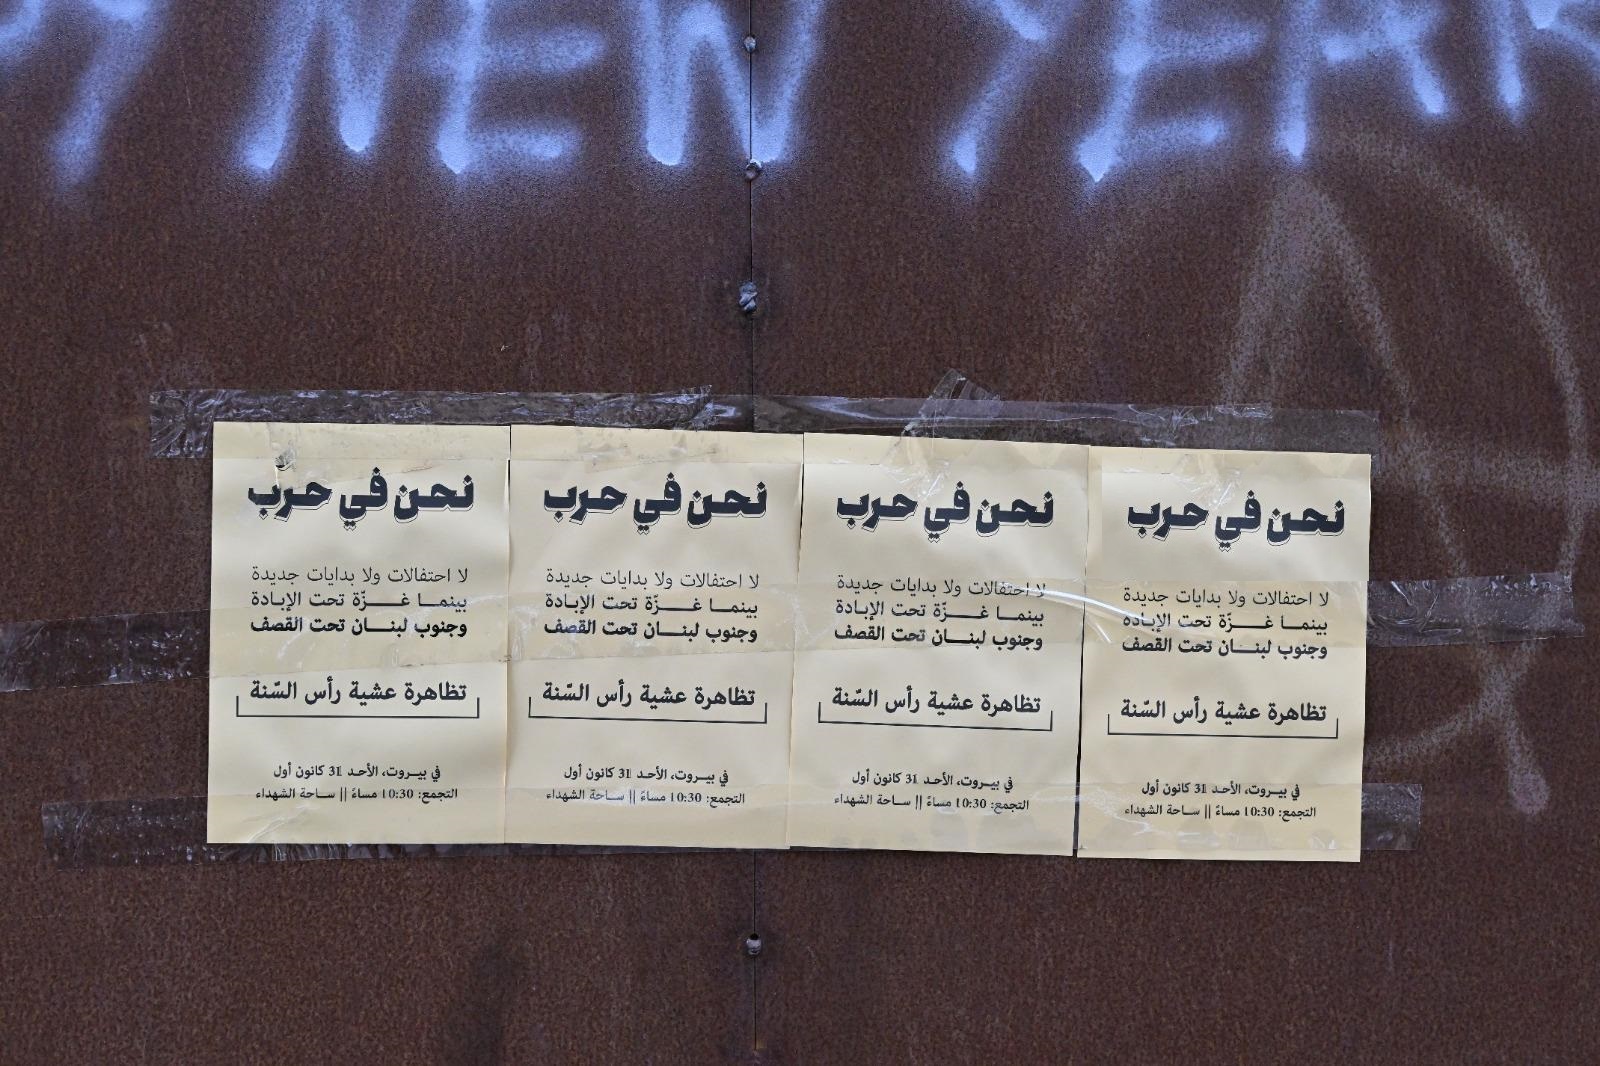 NEW YEAR
نحن في حرب
لا احتفالات ولا بدايات جديدة
بينمـــا غـــــزّة تحت الإبـادة
وجنوب لبنـــان تحت القصف
تظاهرة عشية رأس السّنة
في بيـروت، الأحـد 31 كانون أول
التجمع: 10:30 مساءً || ساحة الشهداء
نحن في حرب
لا احتفالات ولا بدايات جديدة
بينمـــا غـــــزّة تحت الإبـادة
وجنوب لبنـــان تحت القصف
تظاهرة عشية رأس السّنة
في بيـروت، الأحـد 31 كانون أول
التجمع: 10:30 مساءً || ساحة الشهداء
نحن في حرب
لا احتفالات ولا بدايات جديدة
بينمـــا غـــــزّة تحت الإبـادة
وجنوب لبنـــان تحت القصف
تظاهرة عشية رأس السّنة
في بيـروت، الأحـد 31 كانون أول
التجمع: 10:30 مساءً || ساحة الشهداء
نحن في حرب
لا احتفالات ولا بدايات جديدة
بينمـــا غـــــزّة تحت الإبـادة
وجنوب لبنـــان تحت القصف
تظاهرة عشية رأس السّنة
في بيـروت، الأحـد 31 كانون أول
التجمع: 10:30 مساءً || ساحة الشهداء